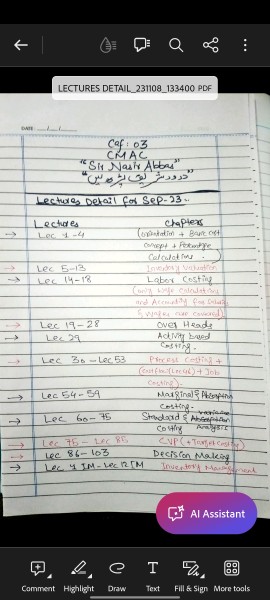 LECTURES DETAIL_231108_133400 PDF
DATE: __/__/__
Caf: 03
CMAC
"Sir Nasir Abbas"
"درود شریف پڑھ لیں"
Lectures Detail for Sep-23.
Lectures Chapters
→ Lec 1-4 (orientation + Basic cost
concept + Percentage
Calculations.)
→ Lec 5-13 Inventory Valuation
→ Lec 14-18 Labor Costing
(only wage calculation
and Accounting for
& wages are covered)
→ Lec 19-28 Over Heads
→ Lec 29 Activity based
Costing.
→ Lec 30-Lec53 Process Costing +
+ Job
Costing).
→ Lec 54-59 Marginal & Absorption
Costing.
→ Lec 60-75 Standard & Absorption variance
Costing Analysis
→ Lec 75 - Lec 85 CVP (+Target costing)
→ Lec 86-103 Decision Making
→ Lec 1 IM-Lec 12 IM Inventory Management
AI Assistant
Comment Highlight Draw Text Fill & Sign More tools